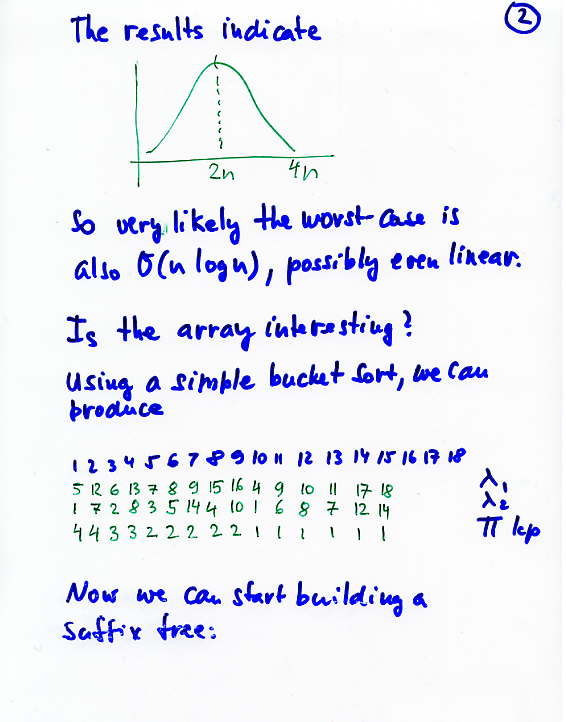 2
The results indicate
2n 4n
So very likely the worst-case is
also O(n log n), possibly even linear.
Is the array interesting?
Using a simple bucket sort, we can
produce
1 2 3 4 5 6 7 8 9 10 11 12 13 14 15 16 17 18
5 12 6 13 7 8 9 15 16 4 9 10 11 17 18 λ1
1 7 2 8 3 5 14 4 10 1 6 8 7 12 14 λ2
4 4 3 3 2 2 2 2 2 1 1 1 1 1 1 π lcp
Now we can start building a
suffix tree: